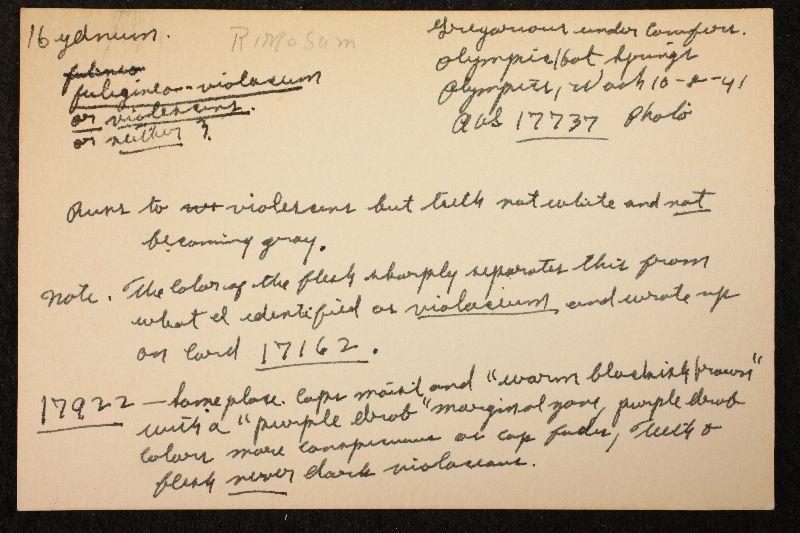 Hydnum. Rimosum
fuligineo-violaceum
or violescens.
or neither ?
Gregarious under conifers.
Olympic Hot Springs
Olympics, Wash 10-8-41
AHS 17737 Photo
Runs to violescens but teeth not white and not
becoming gray.
Note. The color of the flesh sharply separates this from
what I identified as violaceum and wrote up
on card 17162.
17922 – Same place. Caps moist and "warm blackish brown"
with a "purple drab" marginal zone, purple drab
colors more conspicuous as cap fades, Teeth &
flesh never dark violaceous.